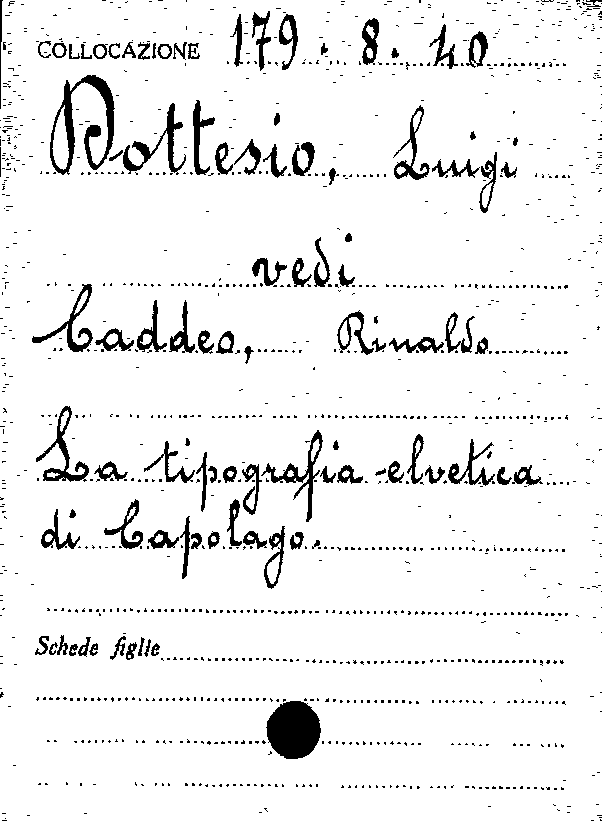 COLLOCAZIONE 179. 8. 40
Dottesio, Luigi
vedi
Caddeo, Rinaldo
La tipografia elvetica
di Capolago.
Schede figlie